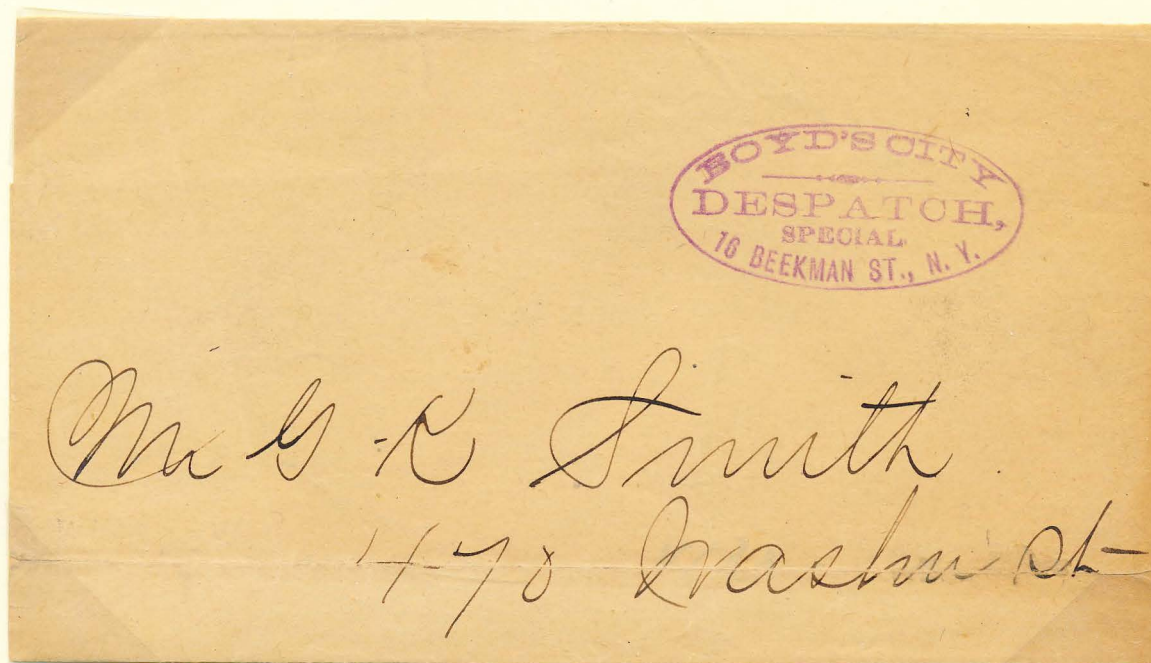 BOYD'S CITY
DESPATCH,
SPECIAL
16 BEEKMAN ST., N. Y.
Mr G K Smith
470 Washn St